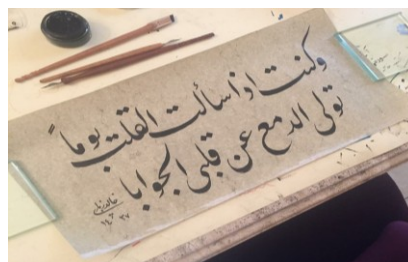 وكنت اذا سألت القلب يوماً
تولى الدمع عن قلبى الجوابا